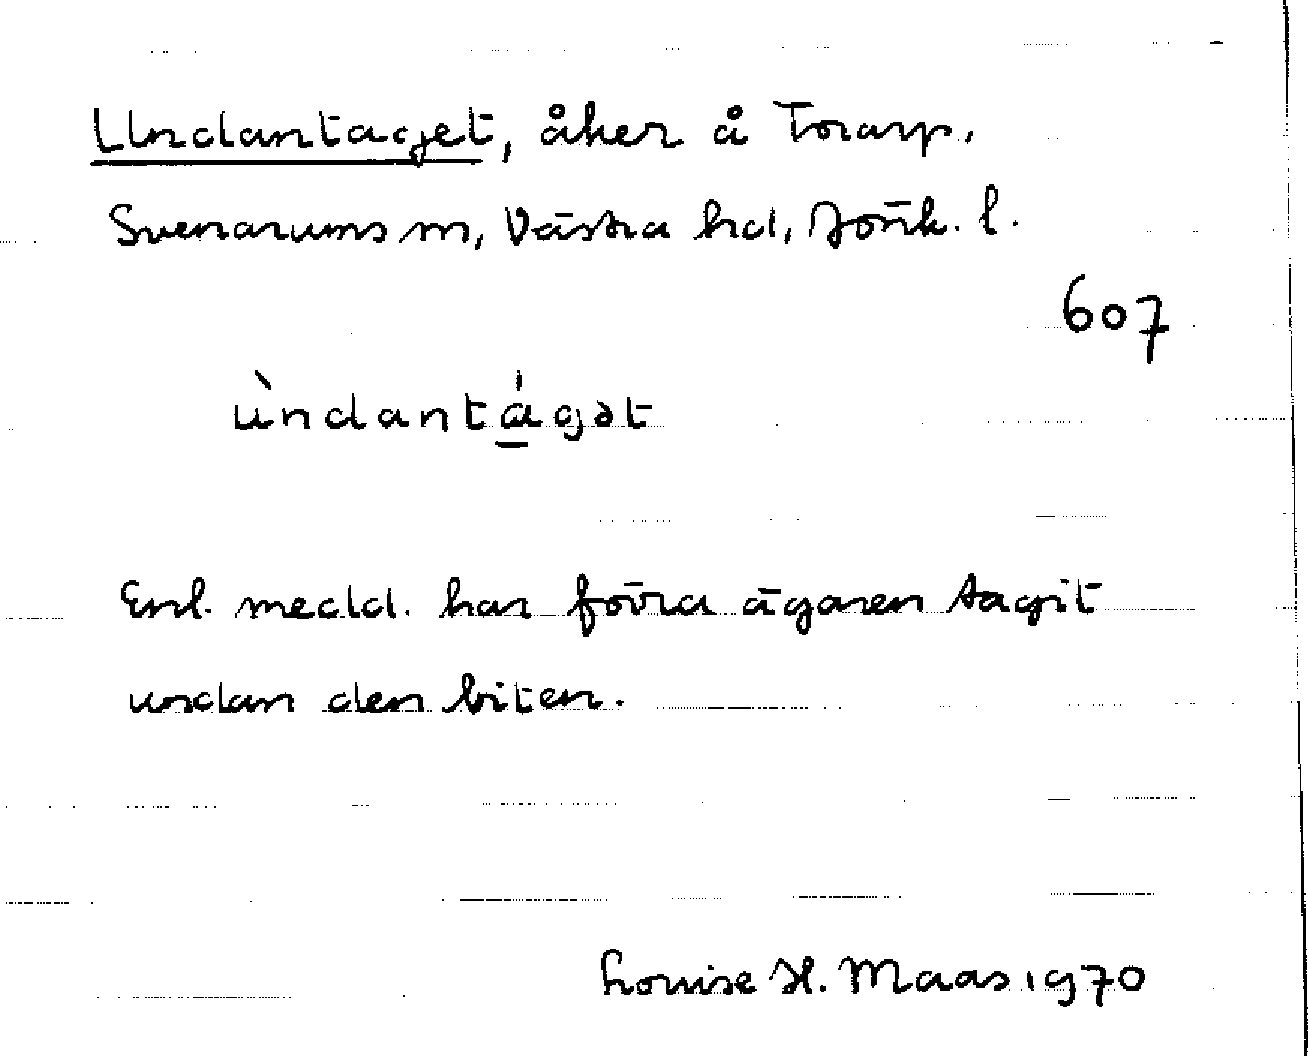 Undantaget, åker å Torarp,
Svenarums sn, Västra hd, Jönk. l.
607
ùndantágət
Enl. medd. har förra ägaren tagit
undan den biten.
Louise H. Maas 1970